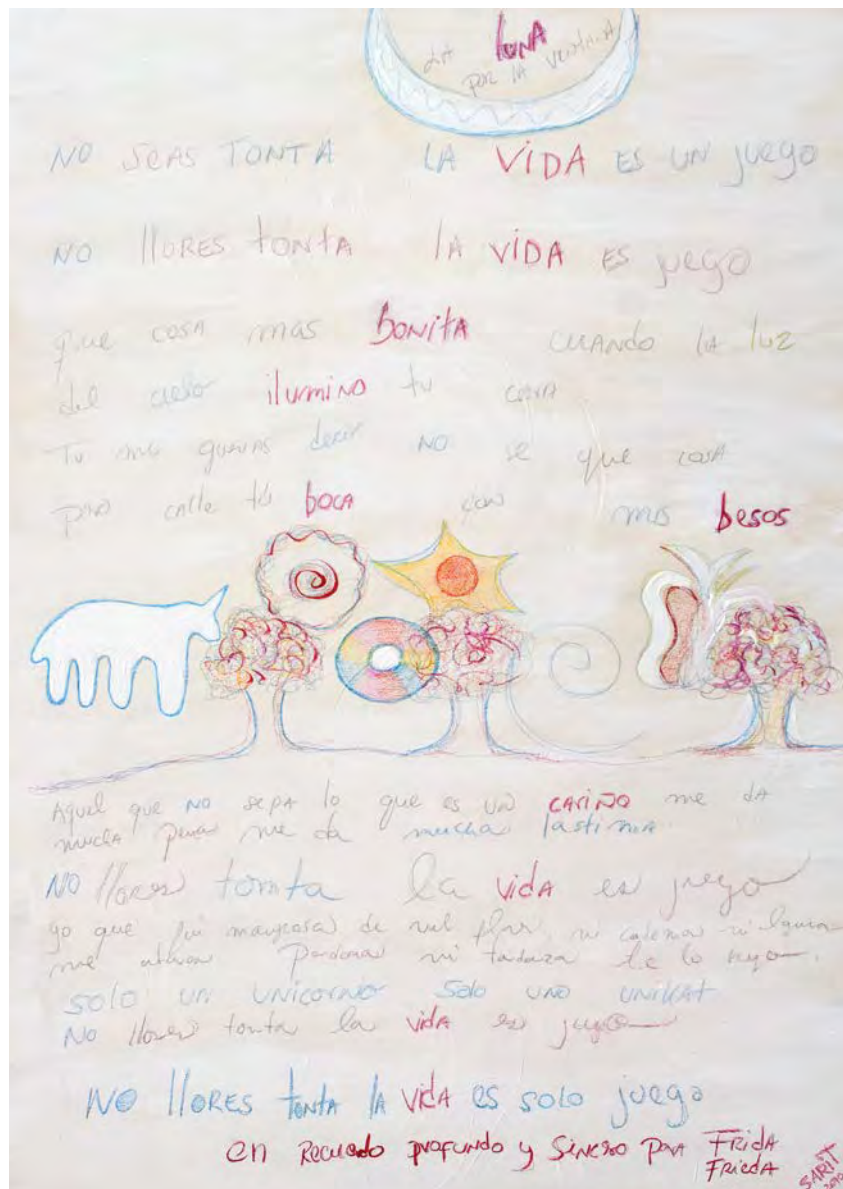 LA LUNA
POR LA VENTANA
NO SEAS TONTA LA VIDA ES UN juego
NO llORES tONTA lA VIDA ES juego
que cosA mas BONitA CUANdo lA luz
del cielo ilumiNO tu cara
Tu me querias decir NO se que cosA
pero calle tu bocA con mis besos
Aquel que NO sepA lo que es un cARiÑO me dA
muchA pena me da mucha lastimA
NO llores tonta la vidA es juego
yo que fui mariposa de mil flores, ni cadena ni
me ataron Perdona mi te lo
solo un UNicorNo Solo uNo UNiKAt
No llores tonta la vidA es juego
NO llORES tontA lA VidA es solo juego
en Recuerdo profundo y SiNcero pARA FRidA
FRiedA
SARIT